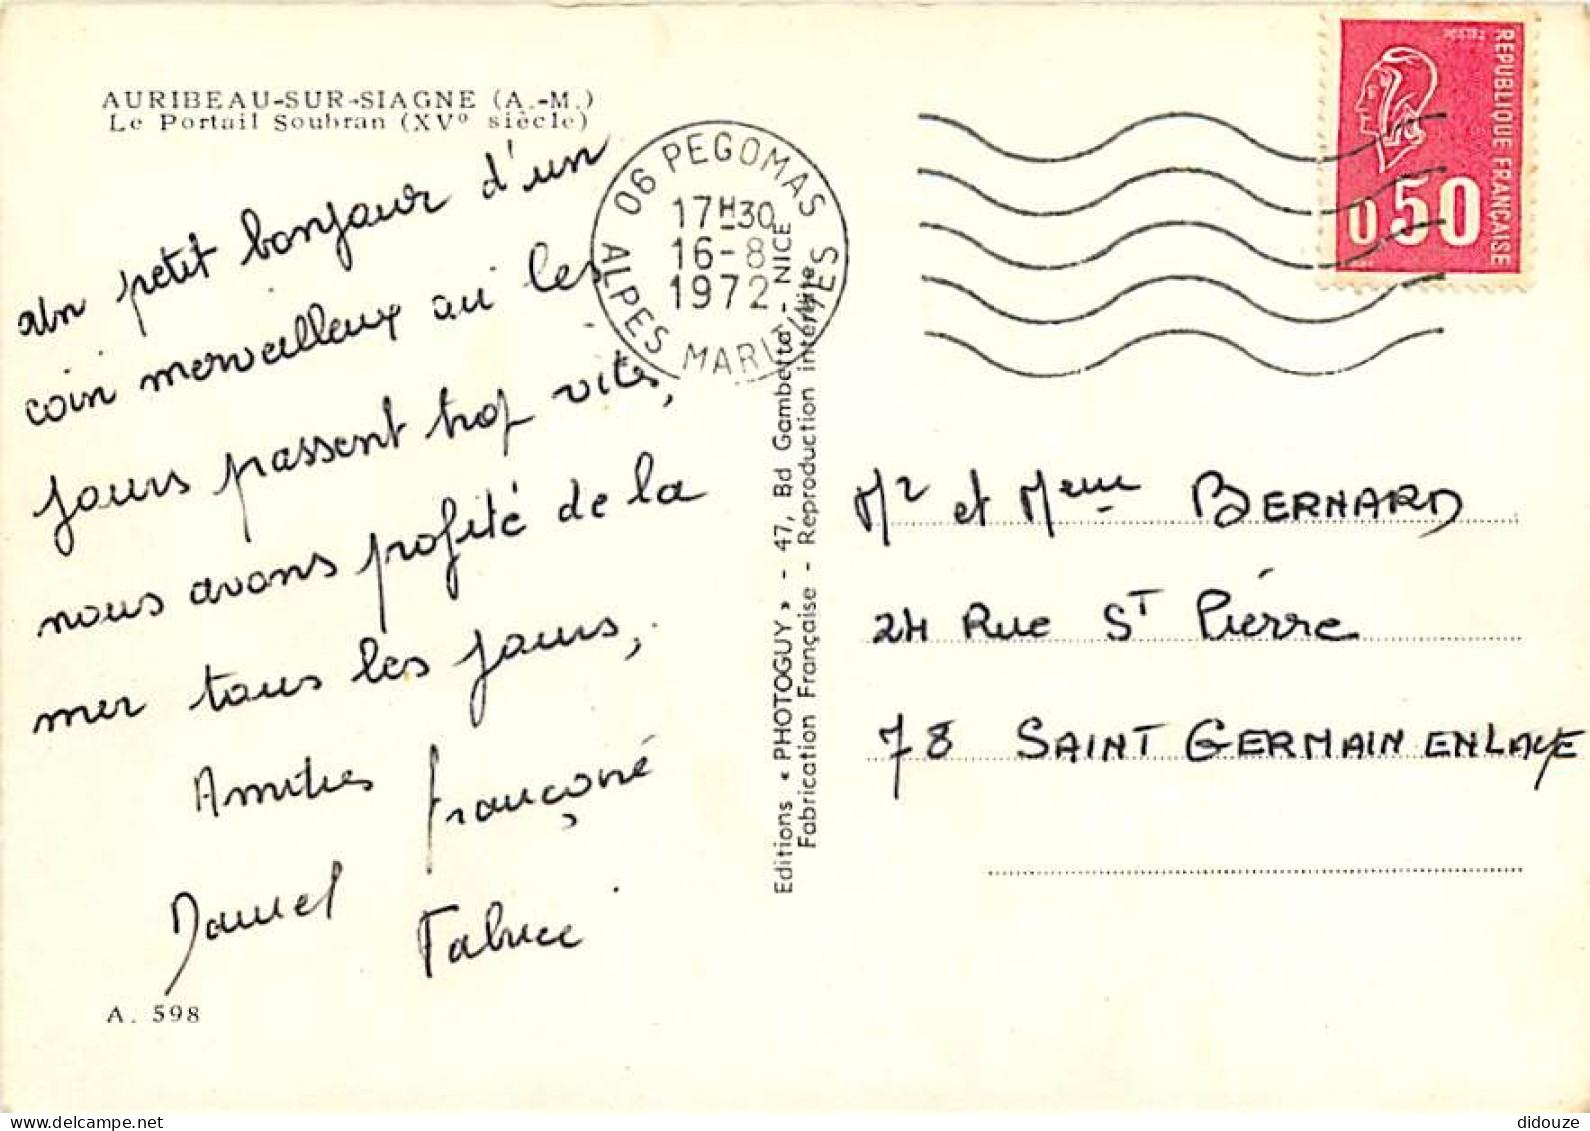 AURIBEAU-SUR-SIAGNE (A.-M.)
Le Portail Soubran (XVº siècle)
un petit bonjour d'un
coin merveilleux où les
jours passent trop vite,
nous avons profité de la
mer tous les jours,
Amitiés
Daniel
Fabrice
A. 598
06 PEGOMAS
17H30
16-8
1972
ALPES MARITIMES
Editions « PHOTOGUY » - 47, Bd Gambetta - NICE
Fabrication Française - Reproduction interdite
POSTES
REPUBLIQUE FRANÇAISE
0,50
Mr et Meme BERNARD
24 Rue ST Piérre
78 SAINT GERMAIN EN LAYE
didouze